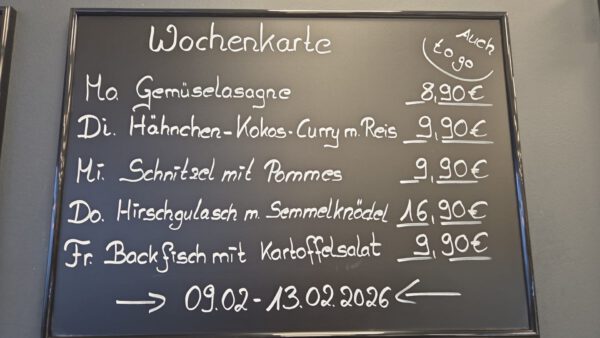 Wochenkarte
Auch
to go
Mo. Gemüselasagne 8,90€
Di. Hähnchen-Kokos-Curry m. Reis 9,90€
Mi. Schnitzel mit Pommes 9,90€
Do. Hirschgulasch m. Semmelknödel 16,90€
Fr. Backfisch mit Kartoffelsalat 9,90€
→ 09.02-13.02.2026 ←